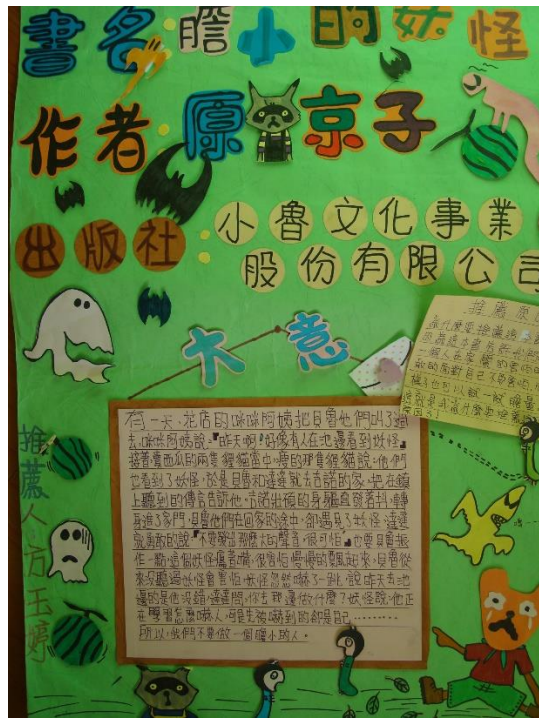 書名:膽小的妖怪
作者:原京子
出版社:小魯文化事業
股份有限公司
大意
有一天,花店的咪咪阿姨把貝魯他們叫了過
去,咪咪阿姨說:『昨天啊!好像有人在池邊看到妖怪。』
接著,賣西瓜的兩隻貍貓當中,瘦的那隻貍貓說:他們
也看到了妖怪。於是貝魯和達達就去
的家,把在鎮
上聽到的傳言告訴他,
出碩的身軀直發著抖,轉
身進了家門,貝魯他們在回家的途中,卻遇見了妖怪,達達
就勇敢的說:『不要發出那麼大的聲音,很可怕。』也要貝魯振
作一點,這個妖怪
著嘴,很害怕慢慢的飄起來,貝魯從
來沒聽過妖怪會害怕,妖怪忽然嚇了一跳,說昨天去池
邊的是他沒錯,達達問:你去那邊做什麼?妖怪說:他正
在學習怎麼嚇人,可是先被嚇到的都是自己………
所以,我們不要做一個膽小的人。
推薦人:方玉婷
推薦原